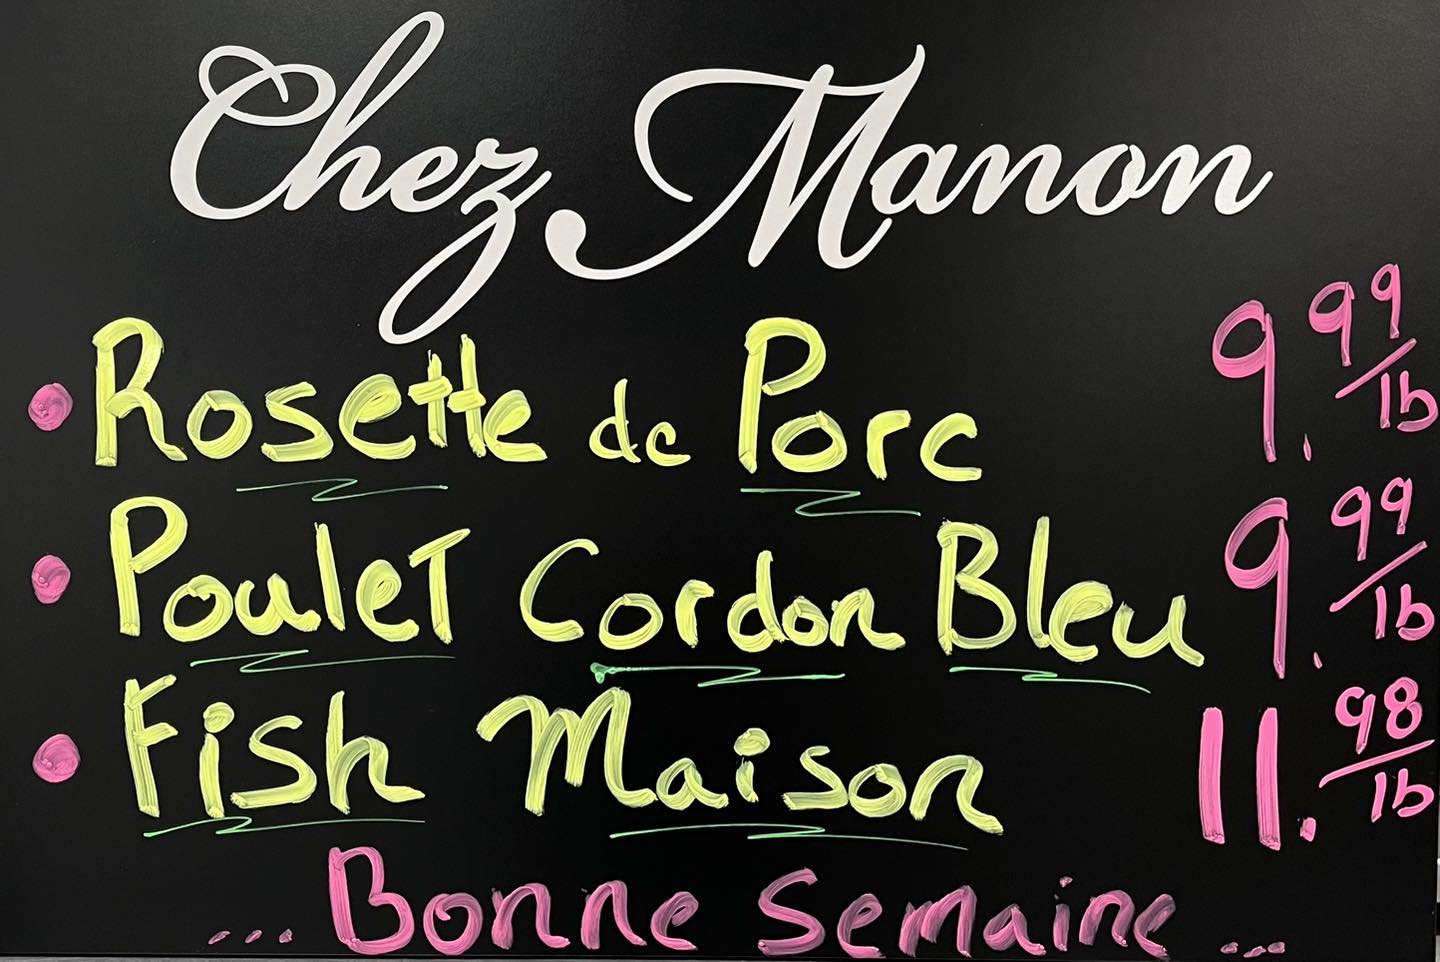 Chez Manon
• Rosette de Porc 9.99/lb
• Poulet Cordon Bleu 9.99/lb
• Fish Maison 11.98/lb
... Bonne Semaine ...